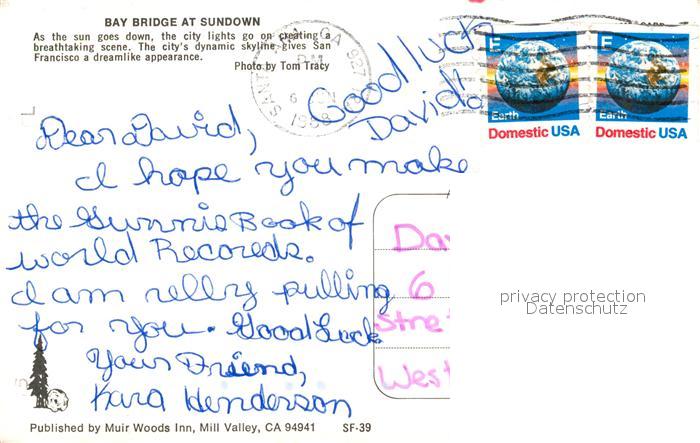 BAY BRIDGE AT SUNDOWN
As the sun goes down, the city lights go on creating a
breathtaking scene. The city's dynamic skyline gives San
Francisco a dreamlike appearance.
Photo by Tom Tracy
SANTA CA 927
PM
6
1988
Good luck
David
E
Earth
Domestic USA
E
Earth
Domestic USA
Dear David,
I hope you make
the Gunnis Book of
world Recoreds.
I am relly pulling
for you. Good Luck
Your Friend,
Kara Henderson
Da
6
Stre
West
privacy protection
Datenschutz
Published by Muir Woods Inn, Mill Valley, CA 94941 SF-39